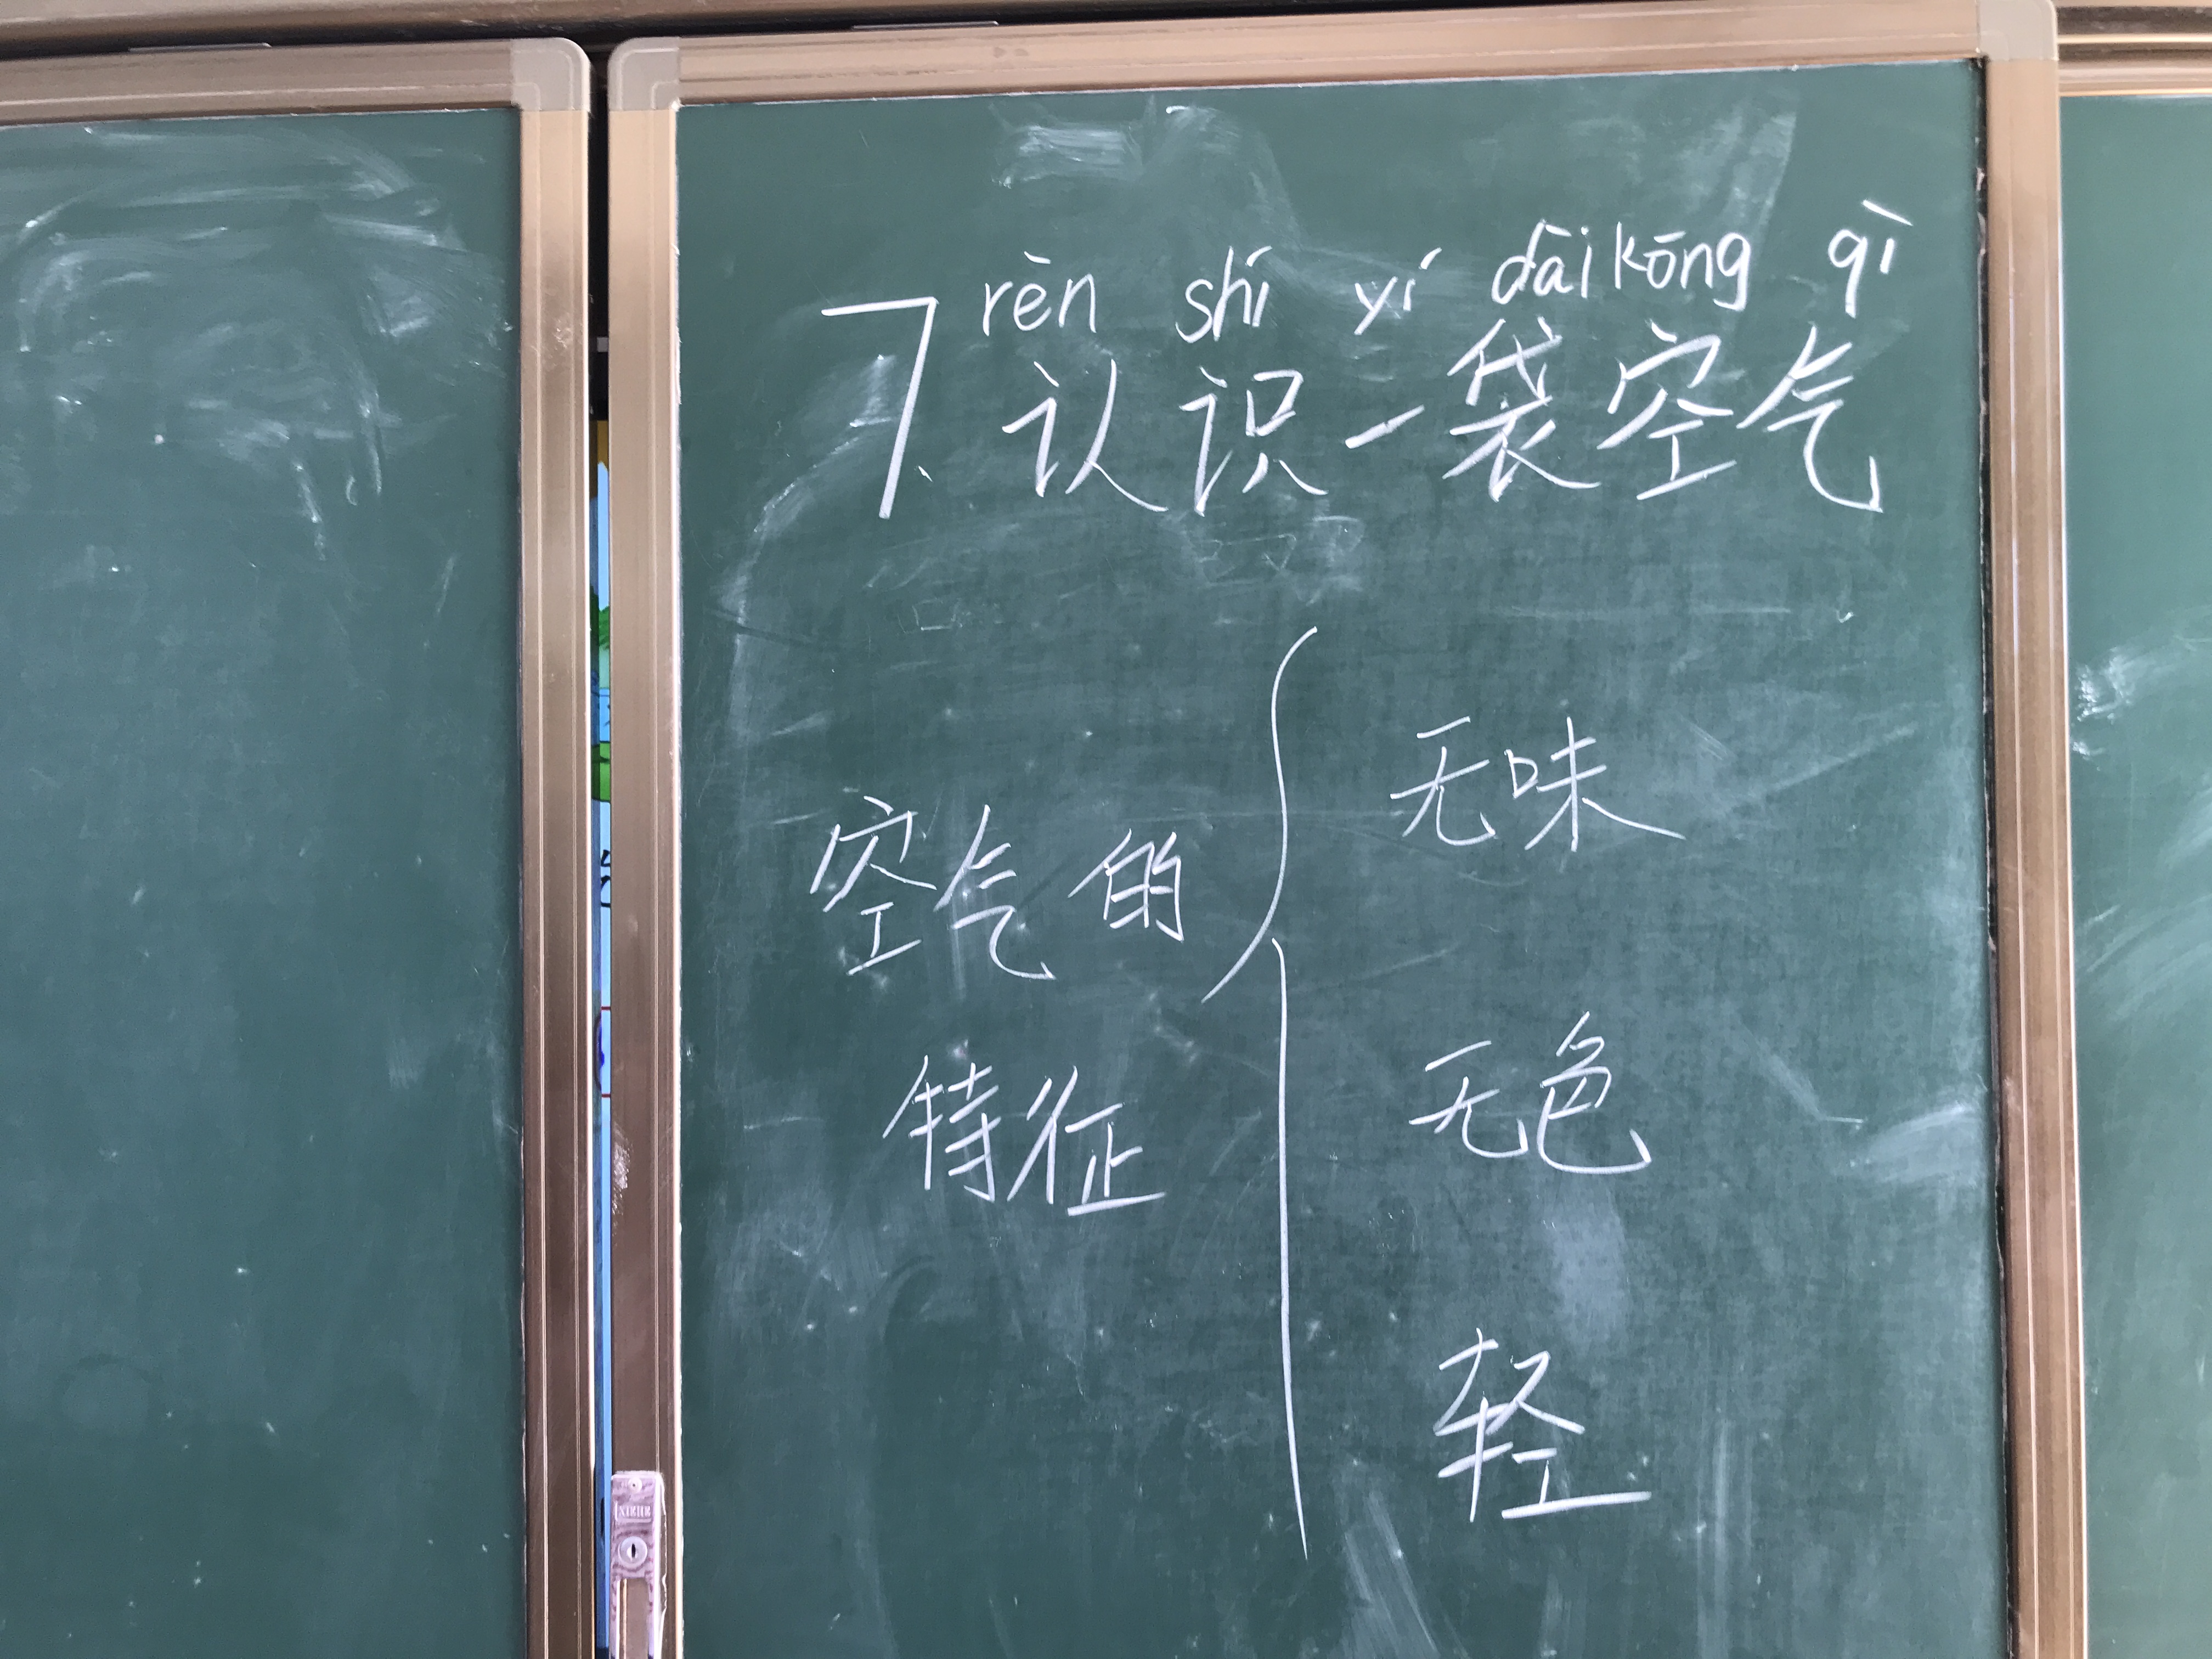 rèn shí yí dài kōng qì
7、认识一袋空气
空气的
特征
无味
无色
轻
XIEHE